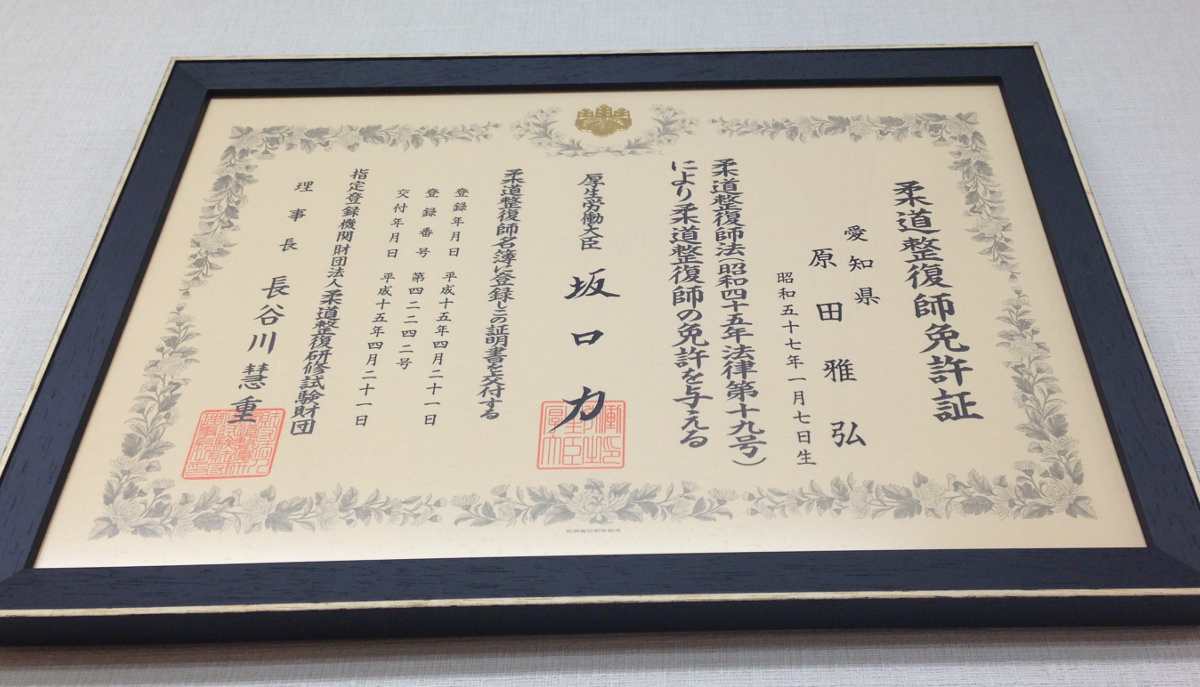 柔道整復師免許証
愛知県
原田雅弘
昭和五十七年一月七日生
柔道整復師法(昭和四十五年法律第十九号)
により柔道整復師の免許を与える
厚生労働大臣 坂口力
柔道整復師名簿に登録しこの証明書を交付する
登録年月日 平成十五年四月二十一日
登録番号 第四二二四二号
交付年月日 平成十五年四月二十一日
指定登録機関財団法人柔道整復研修試験財団
理事長 長谷川慧重